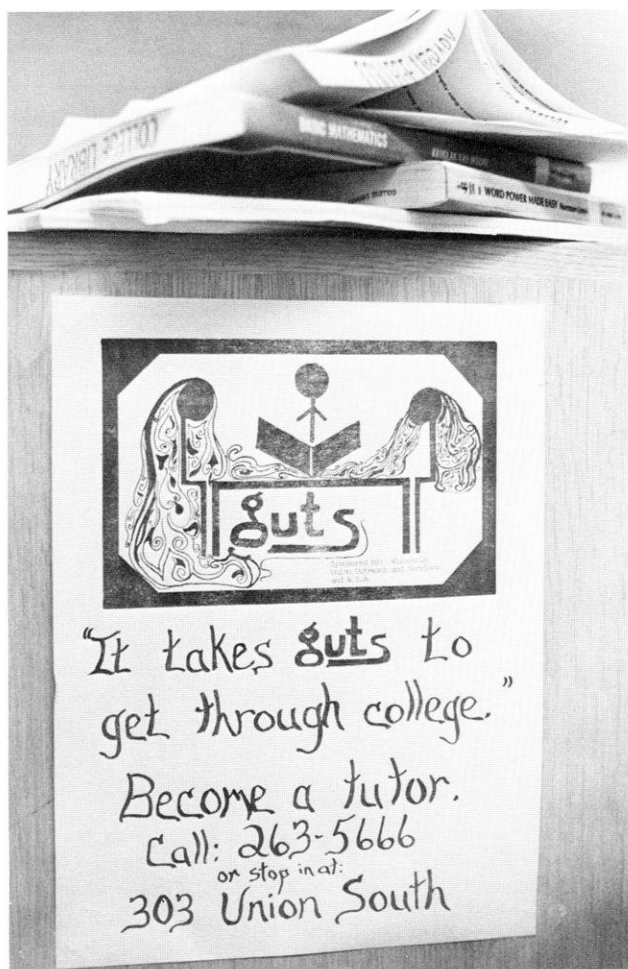 COLLEGE LIBRARY
COLLEGE LIBRARY
BASIC MATHEMATICS
WORD POWER MADE EASY
guts
Sponsored by: Wisconsin
Union Outreach and
and W.S.A.
"It takes guts to
get through college."
Become a tutor.
Call: 263-5666
or stop in at:
303 Union South